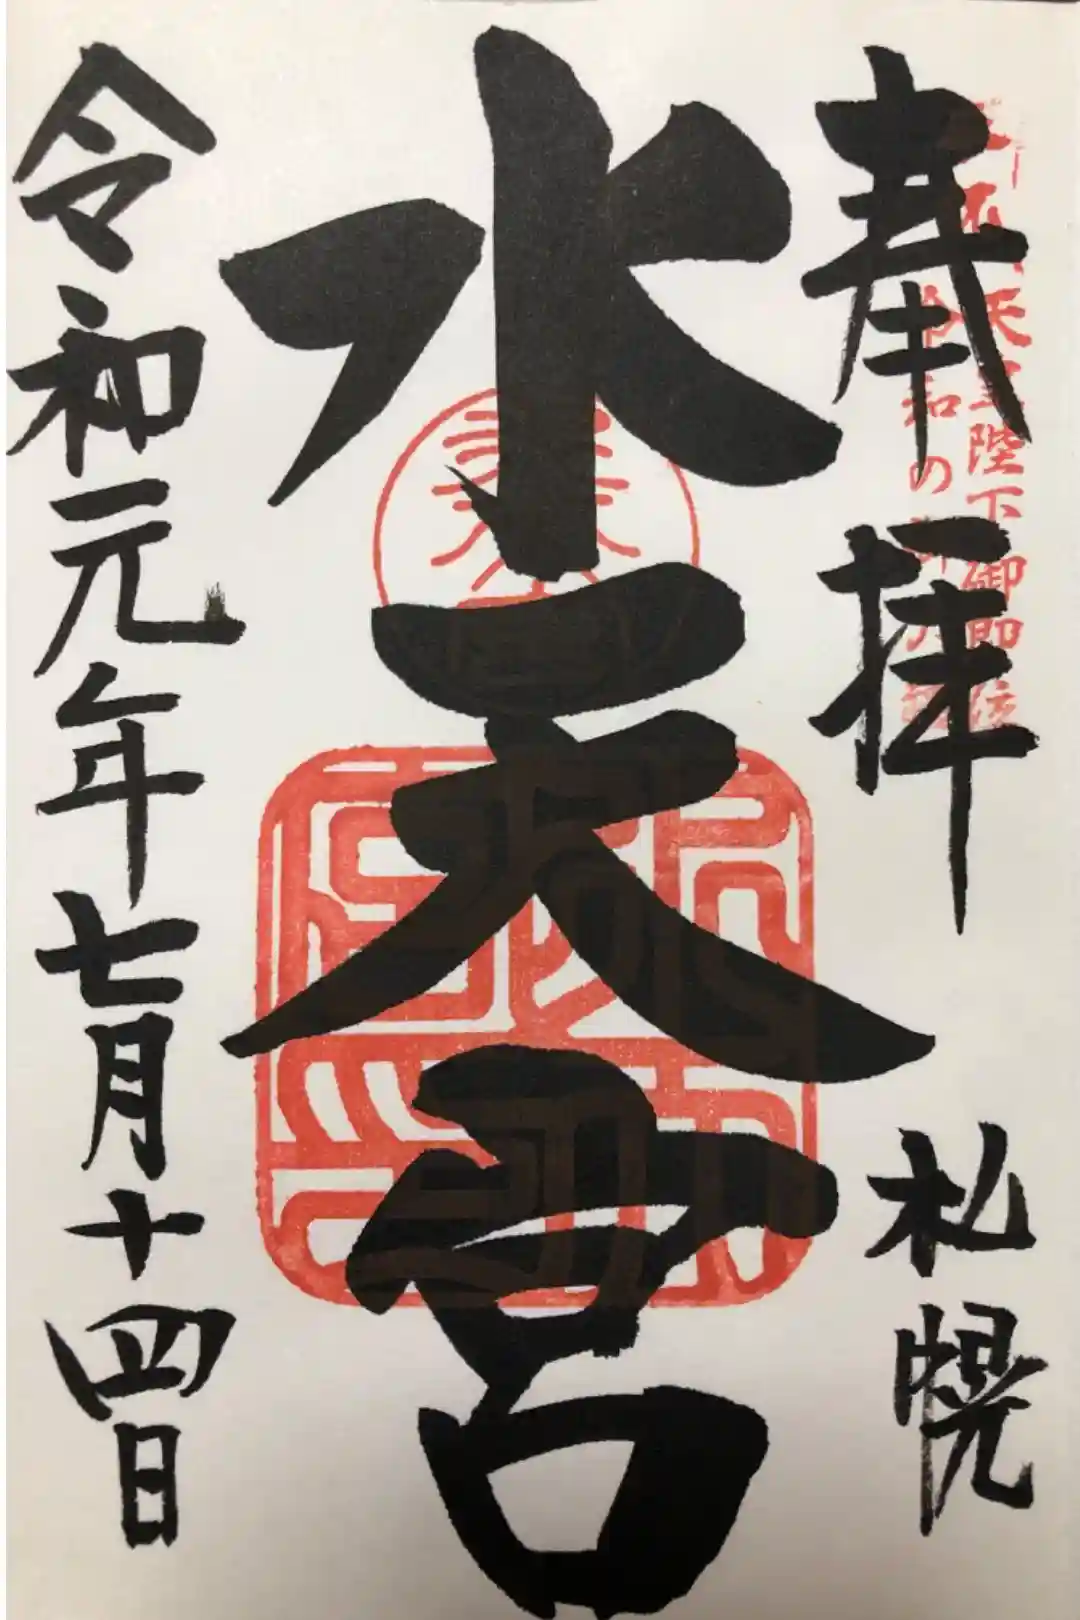 奉拝 札幌
天皇陛下御即位
和の
水天宮
令和元年七月十四日